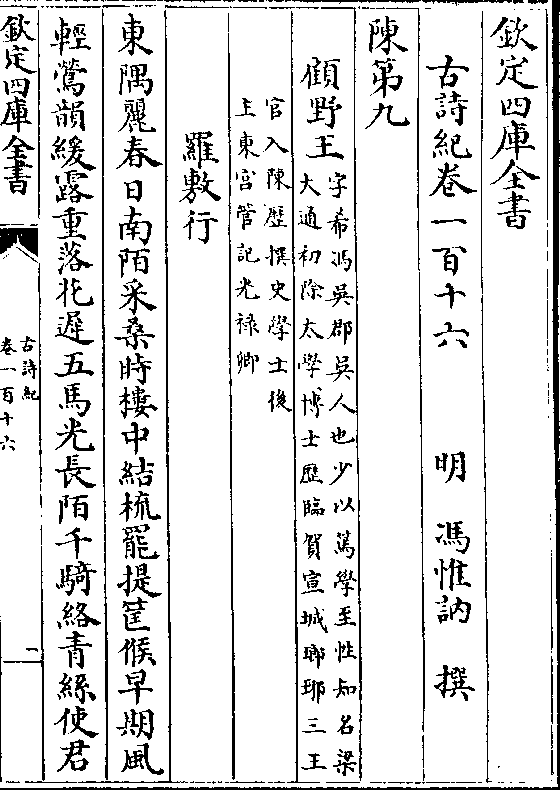 欽定四庫全書
古詩紀卷一百十六　明　馮惟訥　撰
陳第九
顧野王字希馮吳郡吳人也少以篤學至性知名梁
大通初除太學博士歴臨賀宣城瑯琊三王
官入陳歴撰史學士後
主東宮管記光禄卿
羅敷行
東隅麗春日南陌采桑時樓中結梳罷提筐候早期風
輕鶯韻緩露重落花遲五馬光長陌千騎絡青絲使君
欽定四庫全書
古詩紀
卷一百十六
一